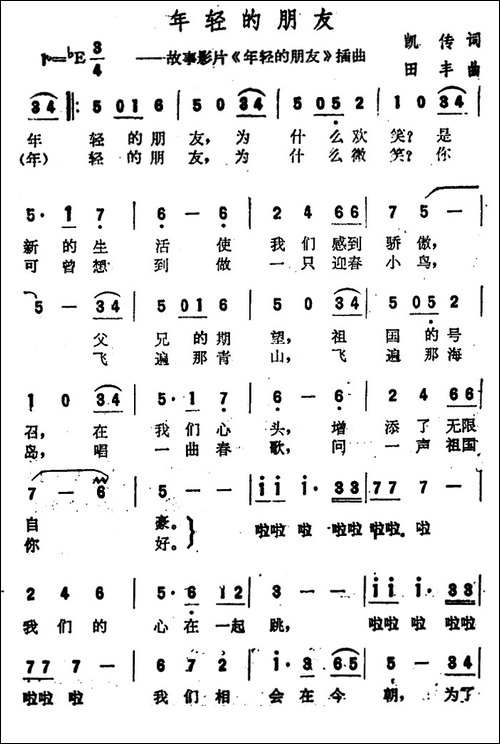 年轻的朋友
1=♭E 3/4 ——故事影片《年轻的朋友》插曲 凯传 词
田丰 曲
3 4 ‖: 5 0 1 6 | 5 0 3 4 | 5 0 5 2 | 1 0 3 4 |
年 轻的朋友，为 什么欢笑？是
(年) 轻的朋友，为 什么微笑？你
5· 1 7 | 6 — 6 | 2 4 6 6 | 7 5 — |
新的生活使我们感到骄傲，
可曾想到做一只迎春小鸟，
5 — 3 4 | 5 0 1 6 | 5 0 3 4 | 5 0 5 2 |
父兄的期望，祖国的号
飞遍那青山，飞遍那海
1 0 3 4 | 5· 1 7 | 6 — 6 | 2 4 6 6 |
召，在我们心头，增添了无限
岛，唱一曲春歌，问一声祖国
7 — 6 | 5 — — | i i i· 3 3 | 7 7 7 — |
自豪。 啦啦 啦 啦啦 啦啦 啦
你好。
2 4 6 | 5· 6 1 2 | 3 — — | i i i· 3 3 |
我们的心在一起跳， 啦啦 啦 啦啦
7 7 7 — | 6 7 2 | i· 3 6 5 | 5 — 3 4 |
啦啦 啦 我们相会在今朝，为了